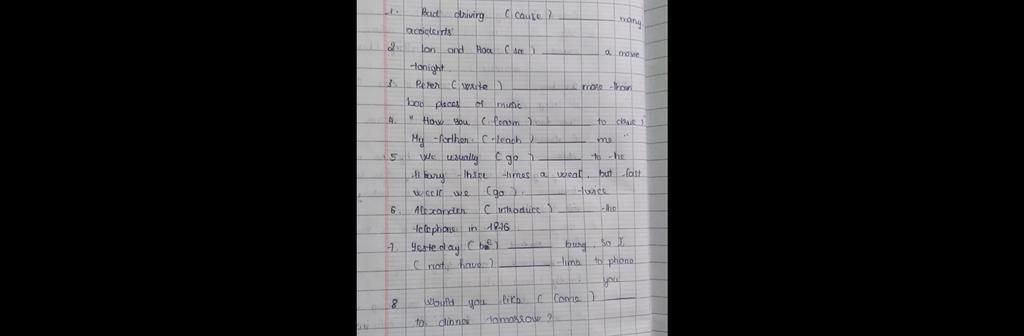 1. Bad driving (cause) ______ many
accidents
2. Lan and Hoa (see) ______ a movie
tonight.
3. Peter (write) ______ more than
pieces of music
4. " How you (learn) ______ to drive?
My farther (teach) ______ me "
5. We usually (go) ______ to the
library three times a week, but last
week we (go) ______ twice
6. Alexander (introduce) ______ the
telephone in 1876
7. Yesterday (be) ______ busy, so I
(not have) ______ time to phone
you
8 Would you like (come) ______
to dinner tomorrow?